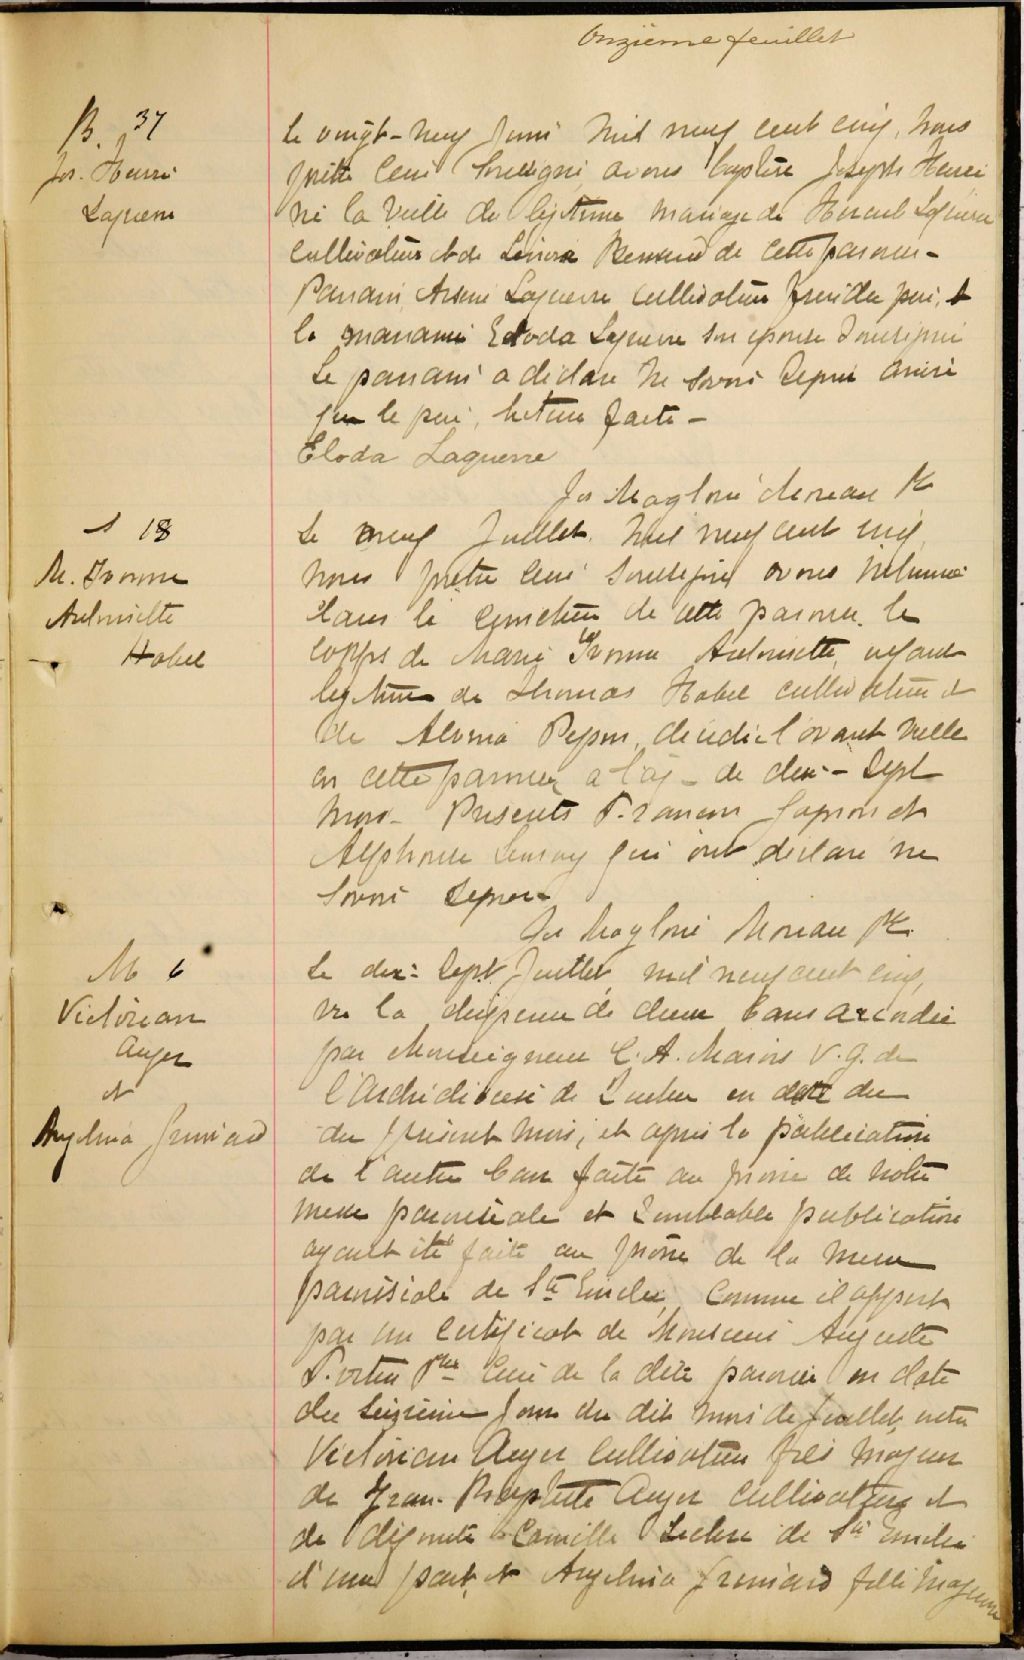 Onzième feuillet
B. 37
Jos. Henri
Laguerre
Le vingt-neuf Juin mil neuf cent cinq, nous
prêtre curé soussigné avons baptisé Joseph Henri
né la veille du légitime mariage de Laguerre
cultivateur et de de cette paroisse-
Parrain Arsène Laguerre cultivateur
la marraine Eloda Laguerre son épouse soussignée
Le parrain a déclaré ne savoir signer ainsi
que le père, lecture faite-
Eloda Laguerre
Jos Magloire Moreau Ptre
S 18
M. Ivonne
Antoinette
Habel
Le neuf Juillet mil neuf cent cinq,
nous prêtre curé soussigné avons inhumé
dans le cimetière de cette paroisse le
corps de Marie Yvonne Antoinette, enfant
légitime de Thomas Habel cultivateur et
de Pepin, décédée l'avant veille
en cette paroisse à l'âge de dix-sept
mois- Présents Gagnon et
Alphonse Lemay qui ont déclaré ne
savoir signer-
Jos Magloire Moreau Ptre.
M 6
Victorian
Auger
et
Angelina
Le dix-sept Juillet, mil neuf cent cinq,
vu la dispense de deux bans accordée
par Monseigneur C. A. Marois V. G. de
l'Archidiocèse de Québec en date du
du présent mois, et après la publication
de l'autre ban faite au prône de notre
messe paroissiale et semblable publication
ayant été faite au prône de la messe
paroissiale de Ste Emelie, comme il appert
par un certificat de Monsieur Auguste
Ptre Curé de la dite paroisse en date
du seizième jour du dit mois de Juillet, entre
Victorian Auger cultivateur fils majeur
de Jean-Baptiste Auger cultivateur et
de défunte Camille Leclerc de Ste Emelie
d'une part, et Angelina fille majeure